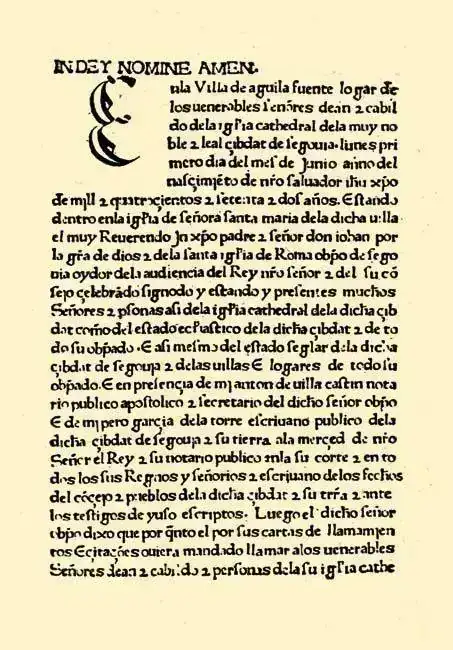 IN DEY NOMINE AMEN.
Enla Villa de aguila fuente logar de
los uenerables señores dean ⁊ cabil
do dela iglia cathedral dela muy no
ble ⁊ leal çibdat de segouia. lunes pri
mero dia del mes de Junio anno del
nasçimiẽto de nr̃o saluador ihũ xp̃o
de mill ⁊ quatrxçientos ⁊ setenta ⁊ dos años. Estando
dentro enla iglia de señora santa maria dela dicha uilla
el muy Reuerendo Jn xp̃o padre ⁊ señor don iohan por
la gr̃a de dios ⁊ dela santa iglia de Roma obp̃o de sego
uia oydor dela audiencia del Rey nr̃o señor ⁊ del su cõ
sejo çelebrãdo signodo y estando y presentes muchos
Señores ⁊ psonas asi dela iglia cathedral dela dicha çib
dat como del estado eclastico dela dicha çibdat ⁊ de to
do su obp̃ado. E asi mesmo del estado seglar dela dicha
çibdat de segouja ⁊ delas uillas E logares de todo su
obp̃ado. E en presençia de mj anton de uilla castin nota
rio publico apostolico ⁊ secretario del dicho señor obp̃o
E de mj pero garçia dela torre escriuano publico dela
dicha çibdat de segouja ⁊ su tierra ala merçed de nr̃o
Señor el Rey ⁊ su notario publico enla su corte ⁊ en to
dos los sus Regnos y señorios ⁊ escrjuano delos fechos
del cõçejo ⁊ pueblos dela dicha çibdat ⁊ su trr̃a ⁊ ante
los testigos de yuso escriptos. Luego el dicho señor
obp̃o dixo que por q̃nto el por sus cartas de llamamjen
tos E çitações ouiera mandado llamar alos uenerables
Señores dean ⁊ cabildo ⁊ personas dela su iglia cathe